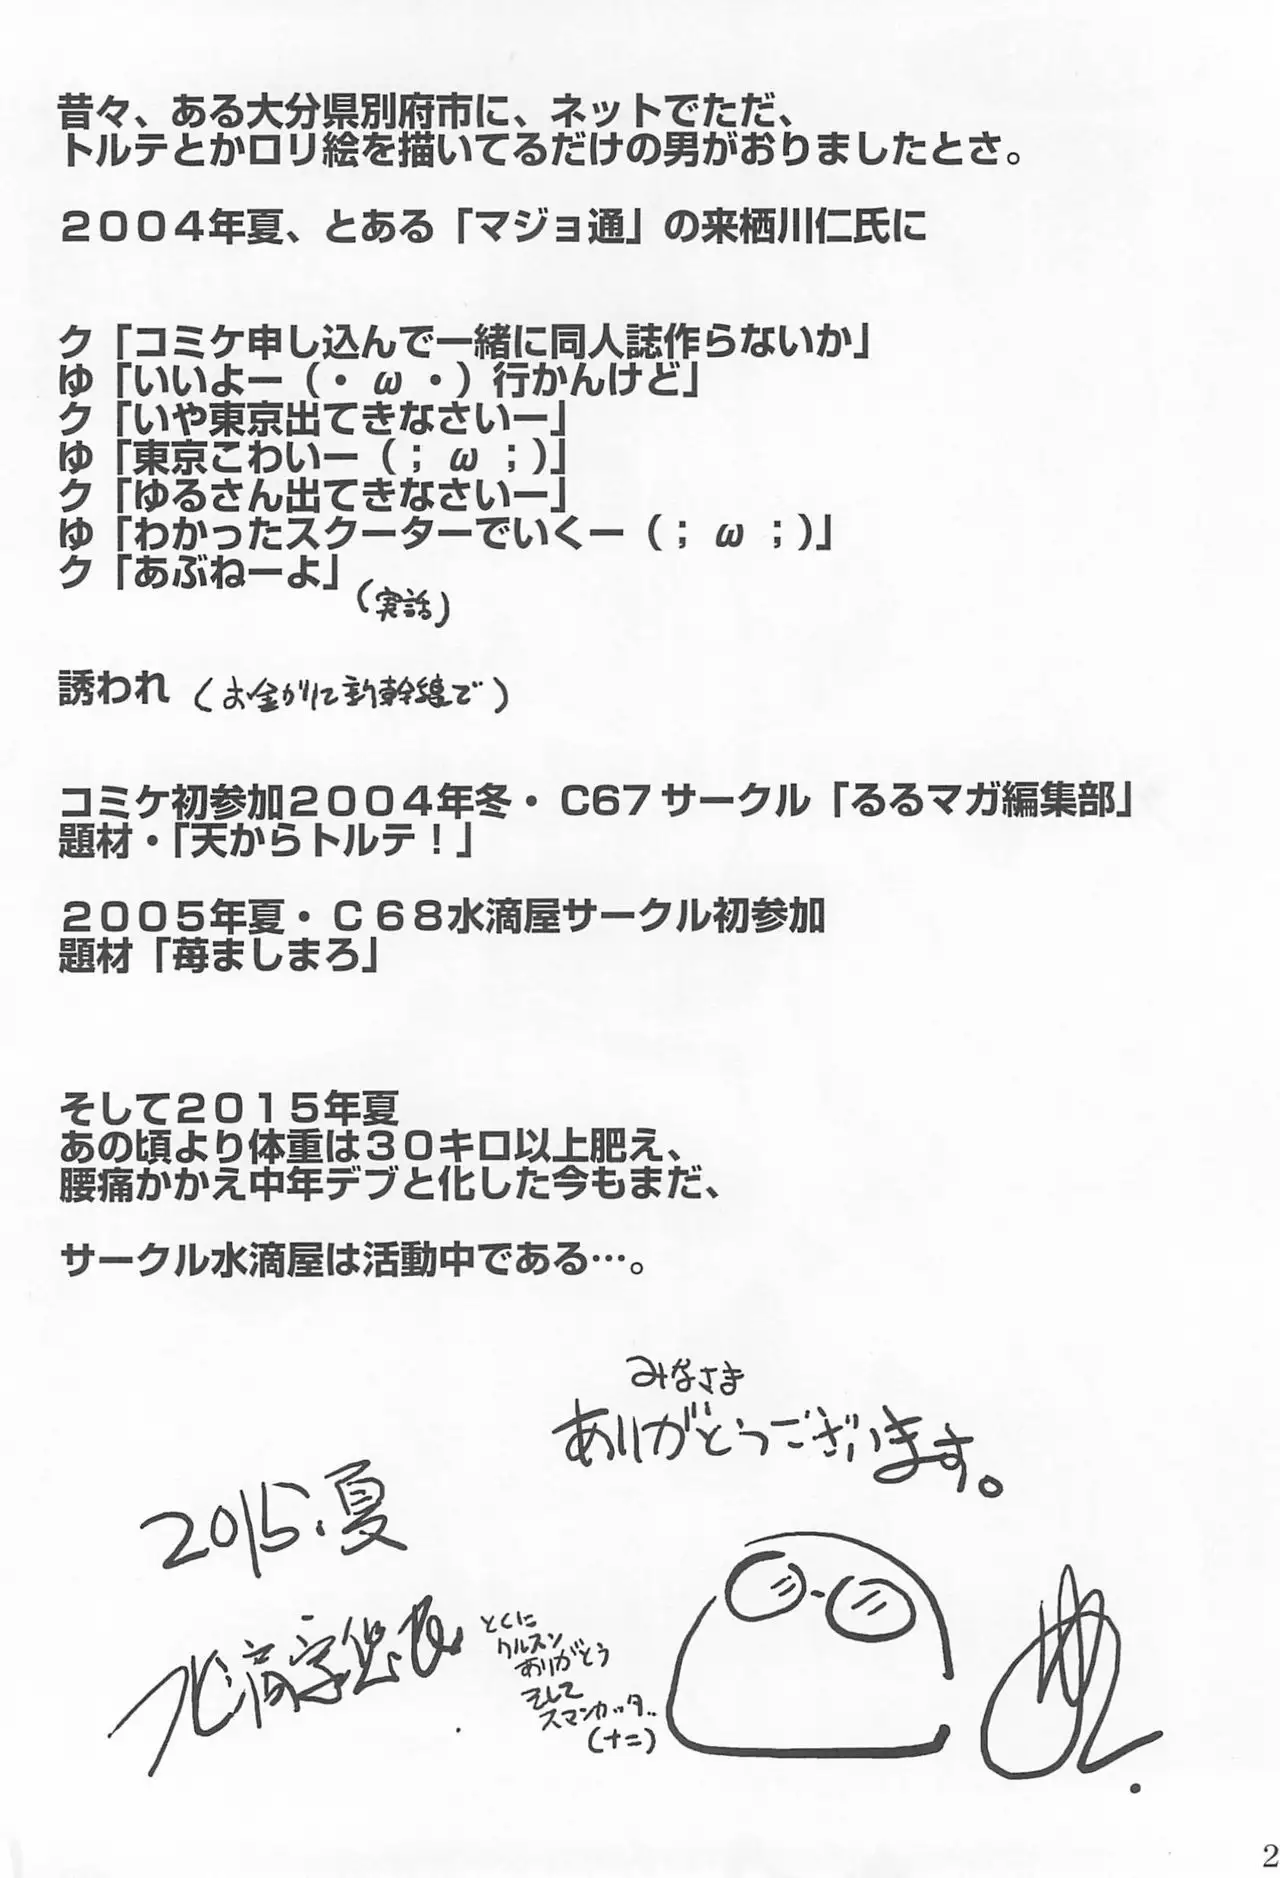 昔々、ある大分県別府市に、ネットでただ、
トルテとかロリ絵を描いてるだけの男がおりましたとさ。
２００４年夏、とある「マジョ通」の来栖川仁氏に
ク「コミケ申し込んで一緒に同人誌作らないか」
ゆ「いいよー（・ω・）行かんけど」
ク「いや東京出てきなさいー」
ゆ「東京こわいー（；ω；）」
ク「ゆるさん出てきなさいー」
ゆ「わかったスクーターでいくー（；ω；）」
ク「あぶねーよ」
（実話）
誘われ（お金がに新幹線で）
コミケ初参加２００４年冬・Ｃ６７サークル「るるマガ編集部」
題材・「天からトルテ！」
２００５年夏・Ｃ６８水滴屋サークル初参加
題材「苺ましまろ」
そして２０１５年夏
あの頃より体重は３０キロ以上肥え、
腰痛かかえ中年デブと化した今もまだ、
サークル水滴屋は活動中である…。
みなさま
ありがとうございます。
2015.夏
とくに
クルスン
ありがとう
そして
スマンカッタ..
（十二）
2